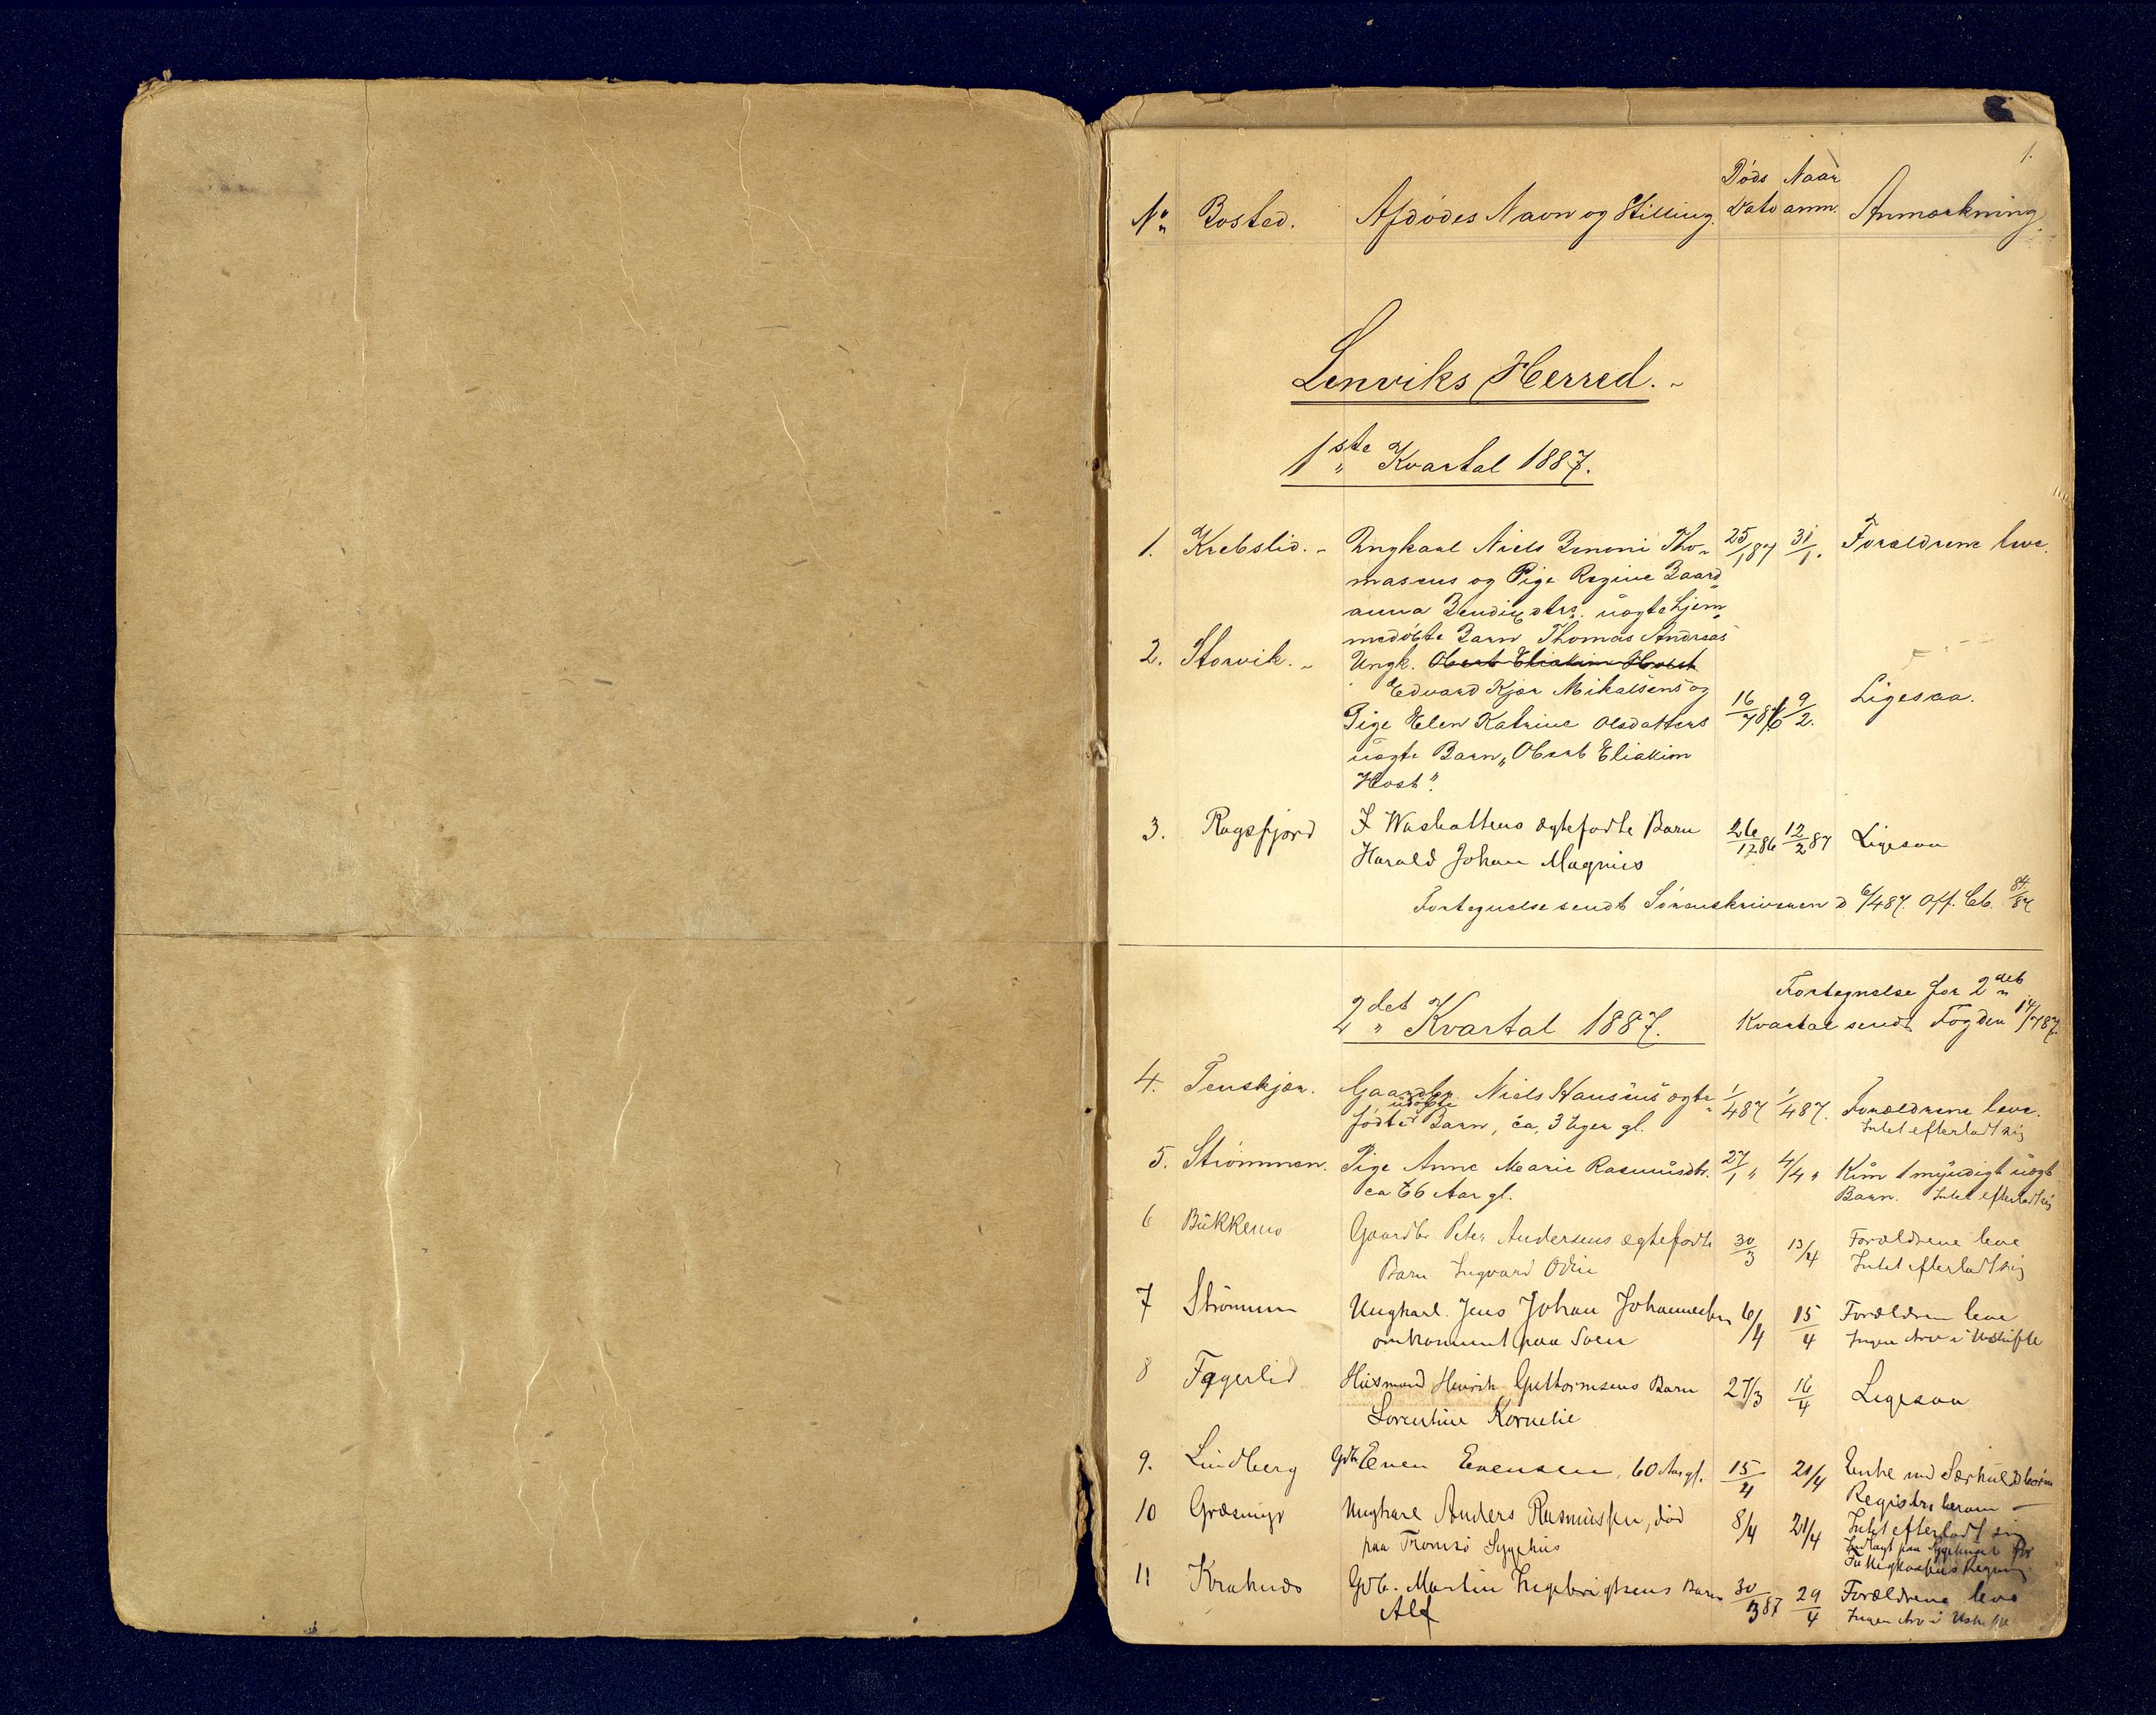 1.
No Bosted. Afdødes Navn og Stilling. Døds Dato Naar anm. Anmærkning.
Lenviks Herred.
1ste Kvartal 1887.
1. Krebslid. Ungkarl Niels Benoni Tho- 25/1 87 31/1. Forældrene leve.
masens og Pige Regine Baard-
anna Bendixdtrs. uægte hjem-
medøbte Barn Thomas Andreas
2. Storvik. Ungk. Obert Eliakim Hoest
Edvard Kjær Mikalsens og
Pige Elen Katrine Olsdatters 16/7 86 9/2. Ligesaa.
uægte Barn "Obert Eliakim
Host".
3. Rogsfjord J Waskattens ægtefødte Barn 26/12 86 12/2 87 Ligesaa
Harald Johan Magnus
Fortegnelse sendt Sorenskriveren d 6/4 87. Off. Cb. 84/87
2det Kvartal 1887.
Fortegnelse for 2det
Kvartal sendt Fogden 14/7 87.
4. Tenskjær. Gaardbr. Niels Hansens ægte- 1/4 87 1/4 87. Forældrene leve.
fødte udøbte Barn, ca. 3 Uger gl. Intet efterladt sig
5. Strømmen. Pige Anne Marie Rasmusdtr. 27/1 " 4/4 " Kun 1 myndigt uægt
ca 66 Aar gl. Barn. Intet efterladt sig
6 Bukkemo Gaardbr. Peter Andersens ægtefødte 30/3 13/4 Forældrene leve
Barn Ingvard Odin Intet efterladt sig
7 Strømmen Ungkarl Jens Johan Johannessen 6/4 15/4 Forældren leve
omkommet paa Søen Ingen Arv i Udskifte
8 Fagerlid Husmand Henrik Guttormsens Barn 27/3 16/4 Ligesaa
Lorentine Kornelie
9. Lindberg Gdb. Even Evensen, 60 Aar gl. 15/4 21/4 Enke med Særkuldbørn
10 Græsmyr Ungkarl Anders Rasmussen, død 8/4 21/4 Intet efterladt sig
paa Tromsø Sygehus Indlagt paa Sygehuset for
Fattigkassens Regning
11 Kraknæs Gdb. Martin Ingebrigtsens Barn 30/3 87 29/4 Forældrene leve
Alf Ingen Arv i